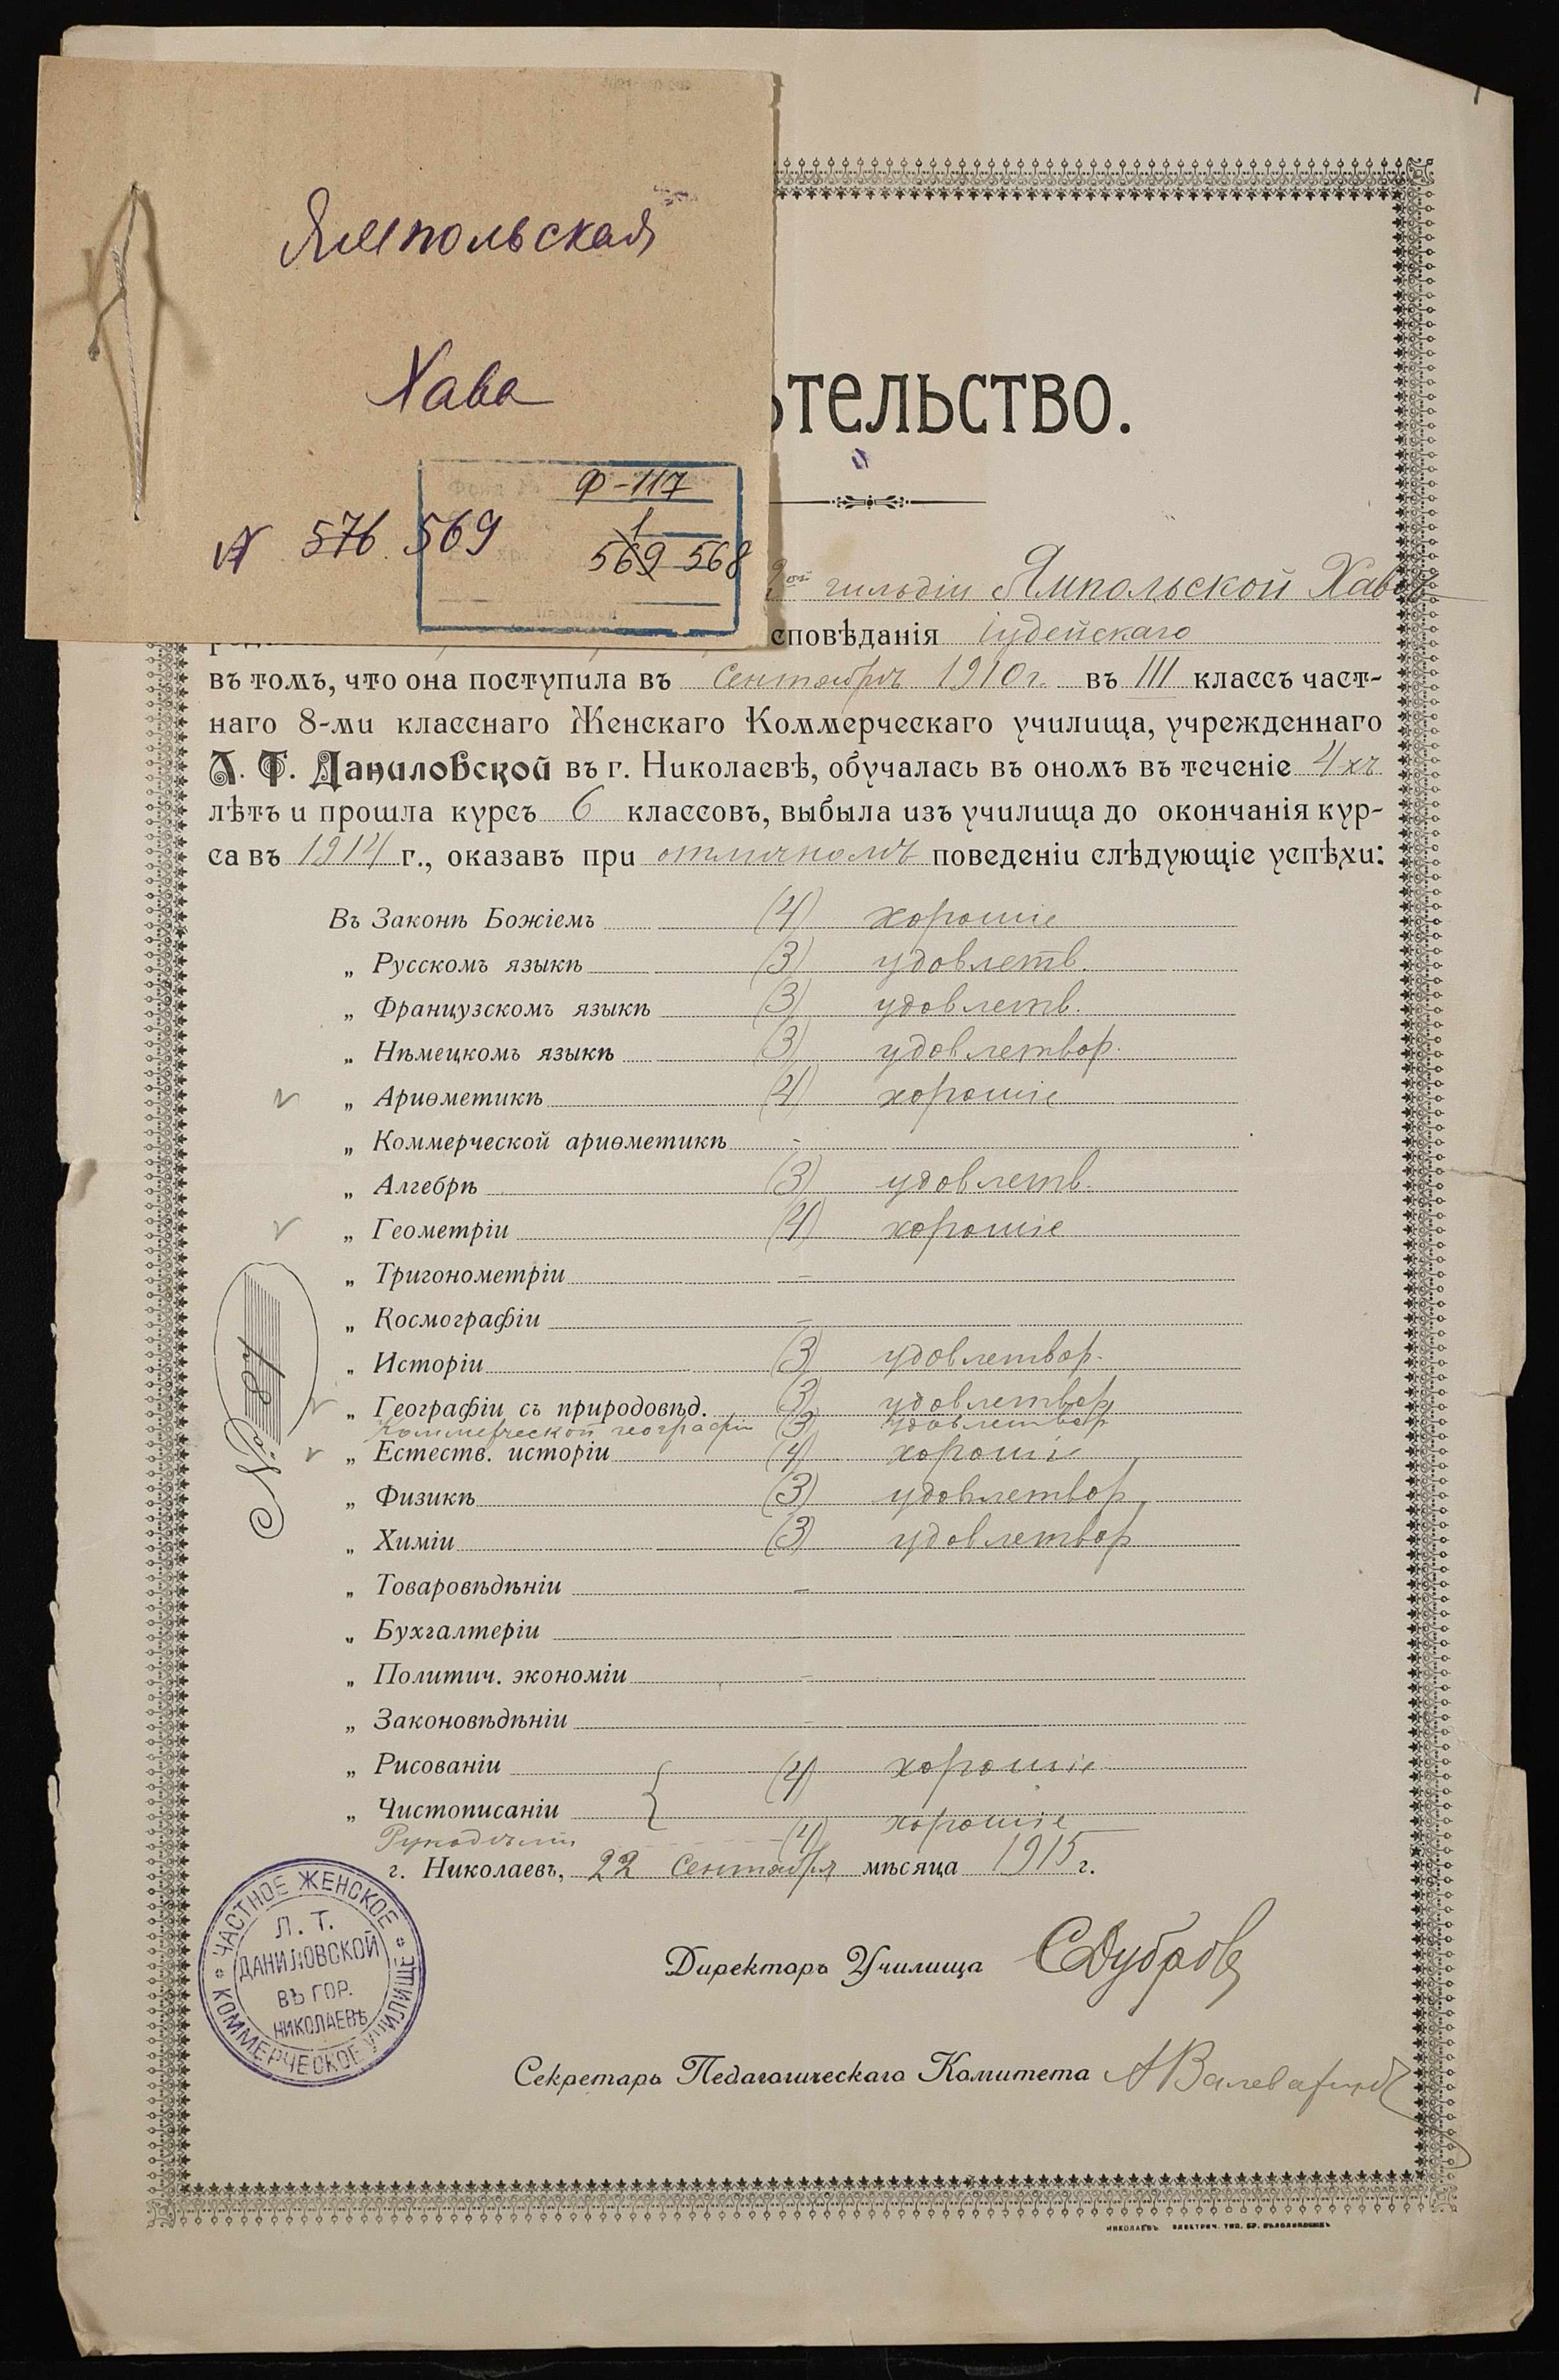 Ямпольская
Хава
Ф-117
1
N 576 569
569 568
тельство.
гильдіи Ямпольской Хавѣ
сповѣданія іудейскаго
въ томъ, что она поступила въ Сентябрѣ 1910 г. въ III классъ част-
наго 8-ми класснаго Женскаго Коммерческаго училища, учрежденнаго
Л. Т. Даниловской въ г. Николаевѣ, обучалась въ ономъ въ теченіе 4хъ
лѣтъ и прошла курсъ 6 классовъ, выбыла изъ училища до окончанія кур-
са въ 1914 г., оказавъ при отличномъ поведеніи слѣдующіе успѣхи:
Въ Законѣ Божіемъ (4) хорошіе
„ Русскомъ языкѣ (3) удовлетв.
„ Французскомъ языкѣ (3) удовлетв.
„ Нѣмецкомъ языкѣ (3) удовлетвор.
„ Ариѳметикѣ (4) хорошіе
„ Коммерческой ариѳметикѣ -
„ Алгебрѣ (3) удовлетв.
„ Геометріи (4) хорошіе
„ Тригонометріи –
„ Космографіи –
„ Исторіи (3) удовлетвор.
„ Географіи съ природовѣд. (3) удовлетвор
Коммерческой географіи (3) удовлетвор
„ Естеств. исторіи (4) хорошіе
„ Физикѣ (3) удовлетвор
„ Химіи (3) удовлетвор
„ Товаровѣдѣніи –
„ Бухгалтеріи –
„ Политич. экономіи –
„ Законовѣдѣніи –
„ Рисованіи (4) хорошіе
„ Чистописаніи
Рукодѣліи (4) хорошіе
г. Николаевъ, 22 Сентября мѣсяца 1915 г.
№ 87
ЧАСТНОЕ ЖЕНСКОЕ КОММЕРЧЕСКОЕ УЧИЛИЩЕ
Л. Т.
ДАНИЛОВСКОЙ
ВЪ ГОР.
НИКОЛАЕВѢ
Директоръ Училища СДубров
Секретарь Педагогическаго Комитета
НИКОЛАЕВЪ ЭЛЕКТРИЧ. ТИП. БР.